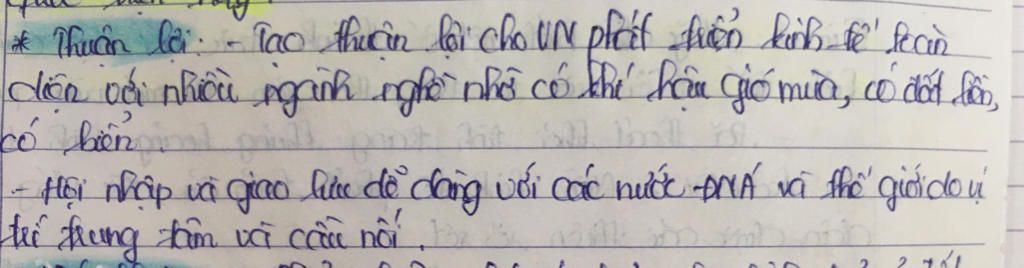 * Thuận lợi: - Tạo thuận lợi cho VN phát triển kinh tế toàn
diện với nhiều ngành nghề nhờ có khí hậu gió mùa, có đất liền,
có biển.
- Hội nhập và giao lưu dễ dàng với các nước ĐNÁ và thế giới do vị
trí trung tâm và cầu nối.